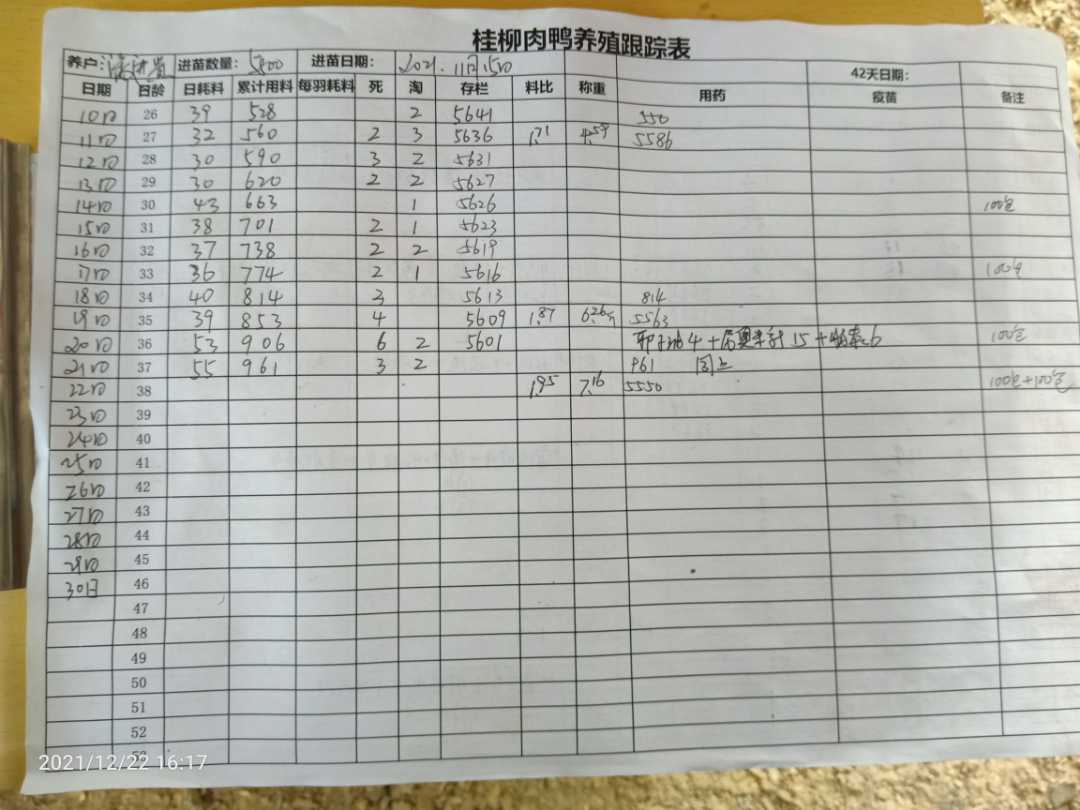 桂柳肉鸭养殖跟踪表
养户： 进苗数量：5800 进苗日期：2021.11月15日 42天日期：
日期 日龄 日耗料 累计用料 每羽耗料 死 淘 存栏 料比 称重 用药 疫苗 备注
10日 26 39 528 2 5641 550
11日 27 32 560 2 3 5636 1.71 4.59 5586
12日 28 30 590 3 2 5631
13日 29 30 620 2 2 5627
14日 30 43 663 1 5626 100包
15日 31 38 701 2 1 5623
16日 32 37 738 2 2 5619
17日 33 36 774 2 1 5616 100包
18日 34 40 814 3 5613 814
19日 35 39 853 4 5609 1.87 6.26斤 5563
20日 36 53 906 6 2 5601 4+ 15+ 6 100包
21日 37 55 961 3 2 961 同上
22日 38 1.95 7.16 5550 100包+100包
23日 39
24日 40
25日 41
26日 42
27日 43
28日 44
29日 45
30日 46
47
48
49
50
51
52
53
2021/12/22 16:17